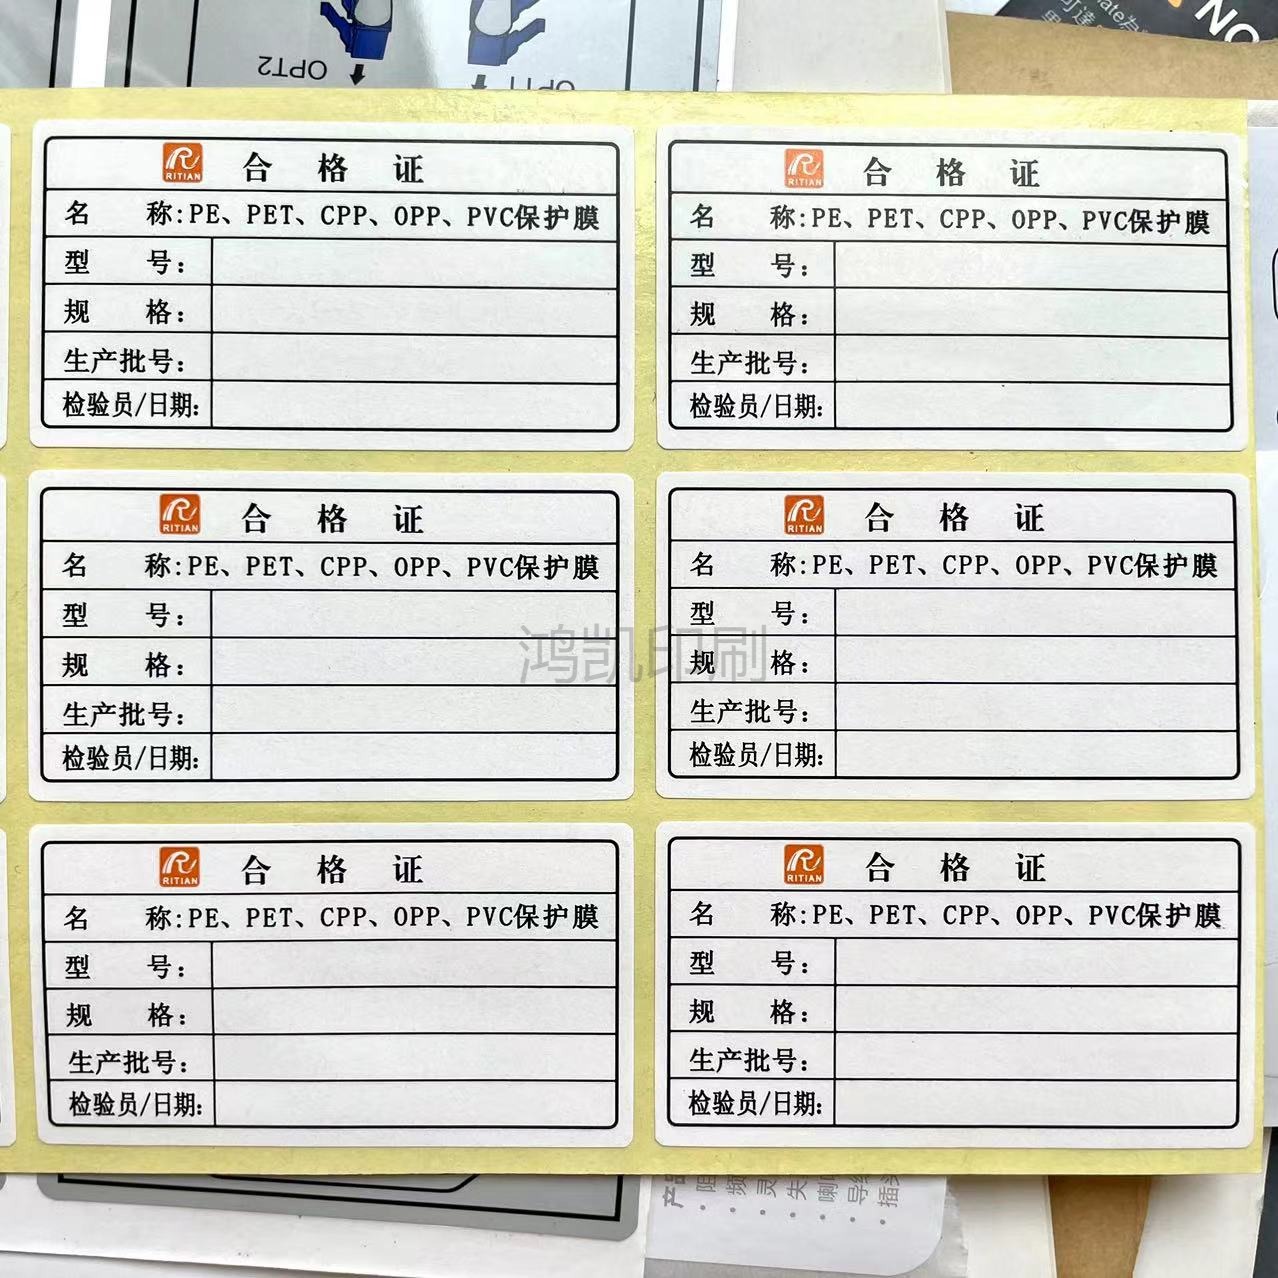 OPT2
NO
RITIAN 合格证
名 称:PE、PET、CPP、OPP、PVC保护膜
型 号:
规 格:
生产批号:
检验员/日期:
RITIAN 合格证
名 称:PE、PET、CPP、OPP、PVC保护膜
型 号:
规 格:
生产批号:
检验员/日期:
RITIAN 合格证
名 称:PE、PET、CPP、OPP、PVC保护膜
型 号:
规 格:
生产批号:
检验员/日期:
RITIAN 合格证
名 称:PE、PET、CPP、OPP、PVC保护膜
型 号:
规 格:
生产批号:
检验员/日期:
鸿凯印刷
RITIAN 合格证
名 称:PE、PET、CPP、OPP、PVC保护膜
型 号:
规 格:
生产批号:
检验员/日期:
RITIAN 合格证
名 称:PE、PET、CPP、OPP、PVC保护膜
型 号:
规 格:
生产批号:
检验员/日期: